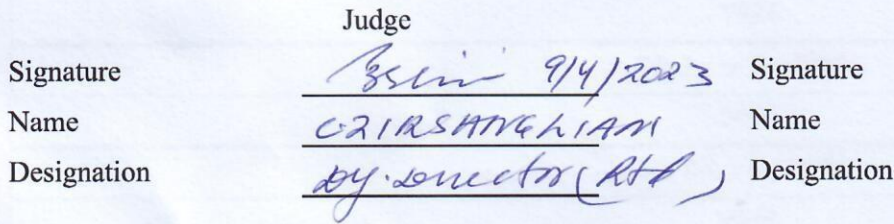 Judge
Signature 9/4/2023 Signature
Name C. ZIRSANGLIANI Name
Designation Dy. Director (Rtd) Designation